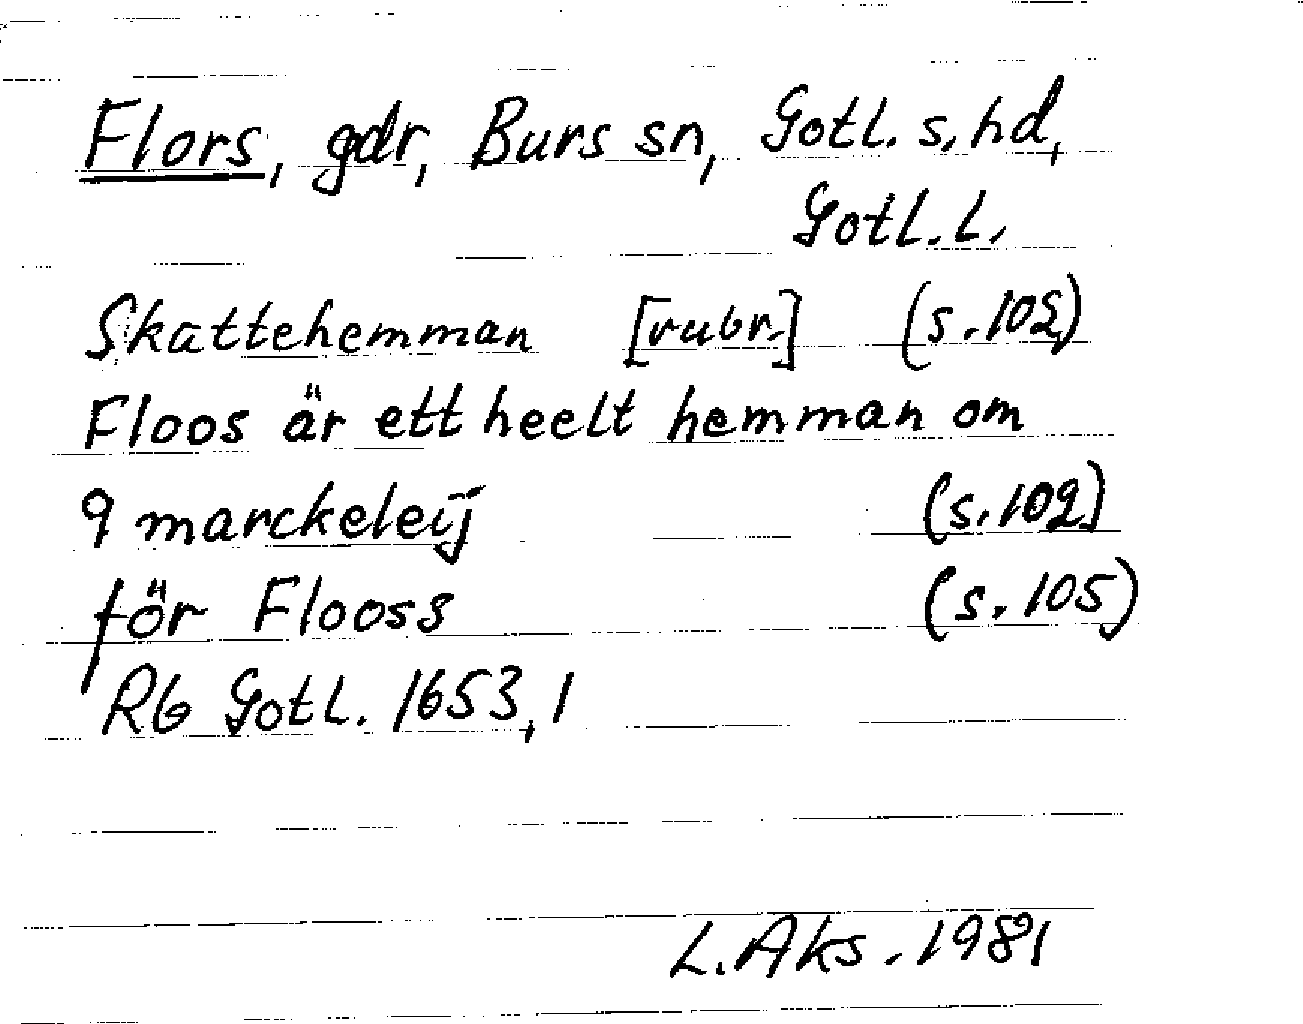 Flors, gdr, Burs sn, Gotl. s. hd,
Gotl. L.
Skattehemman [rubr.] (s. 102)
Floos är ett heelt hemman om
9 marckeleij (s. 102)
för Flooss (s. 105)
Rb Gotl. 1653, 1
L. Aks. 1981